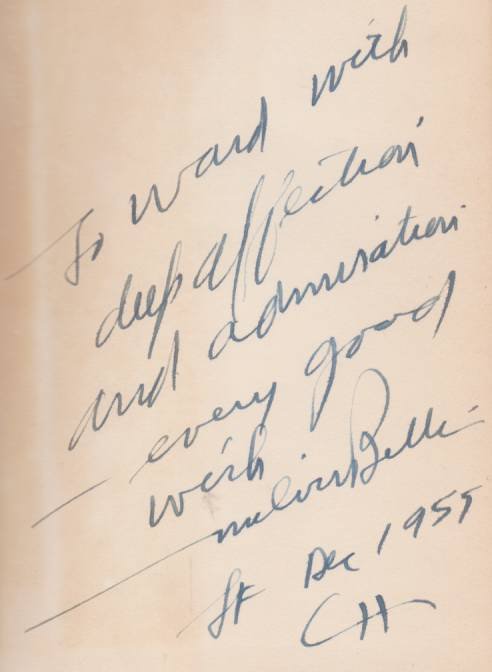 To Ward with
deep affection
and admiration
— every good
wish.
— Melvin Belli —
SF Dec 1955
CH